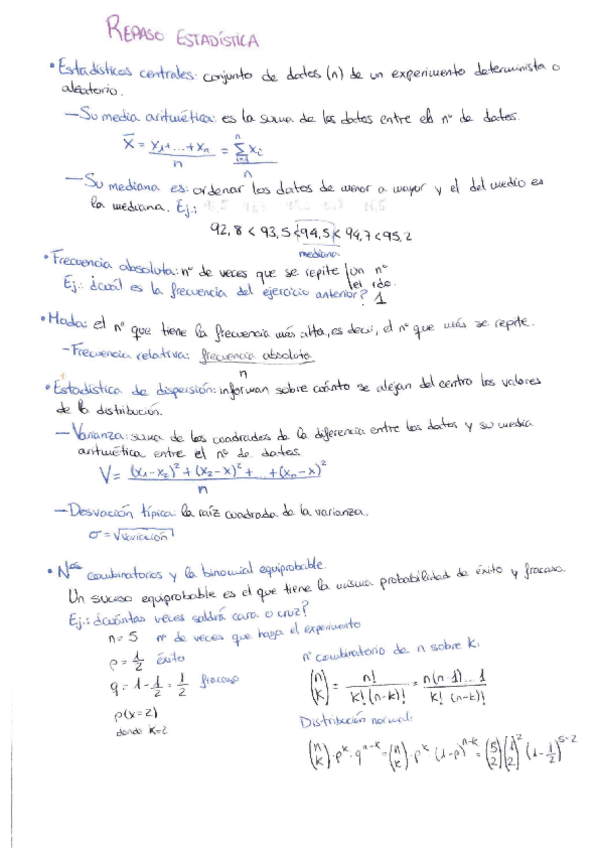 REPASO ESTADÍSTICA
• Estadísticos centrales: conjunto de datos (n) de un experimento determinista o
aleatorio.
— Su media aritmética: es la suma de los datos entre el nº de datos.
x̄ = (x₁+...+xₙ)/n = (∑ᵢ₌₁ⁿ xᵢ)/n
— Su mediana es: ordenar los datos de menor a mayor y el del medio es
la mediana. Ej.:
92,8 < 93,5 < 94,5 < 94,7 < 95,2
mediana
• Frecuencia absoluta: nº de veces que se repite un nº
Ej.: ¿cuál es la frecuencia del ejercicio anterior? 1
• Moda: el nº que tiene la frecuencia más alta, es decir, el nº que más se repite.
– Frecuencia relativa: frecuencia absoluta / n
• Estadística de dispersión: informan sobre cuánto se alejan del centro los valores
de la distribución.
— Varianza: suma de los cuadrados de la diferencia entre los datos y su media
aritmética entre el nº de datos.
V = ((x₁-x₂)² + (x₂-x)² + ... + (xₙ-x)²)/n
— Desviación típica: la raíz cuadrada de la varianza.
σ = √variación
• Nos combinatorios y la binomial equiprobable.
Un suceso equiprobable es el que tiene la misma probabilidad de éxito y fracaso.
Ej.: ¿cuántas veces saldrá cara o cruz?
n = 5 nº de veces que haga el experimento
p = 1/2 éxito
q = 1 - 1/2 = 1/2 fracaso
p(x=2)
donde K=2
nº combinatorio de n sobre K:
(n K) = n!/(K!(n-k)!) = n(n-1)...1/(K!(n-k)!)
Distribución normal:
(n K)·p^k·q^(n-k) = (n K)·p^k·(1-p)^(n-k) = (5 2)(1/2)²(1-1/2)^(5-2)